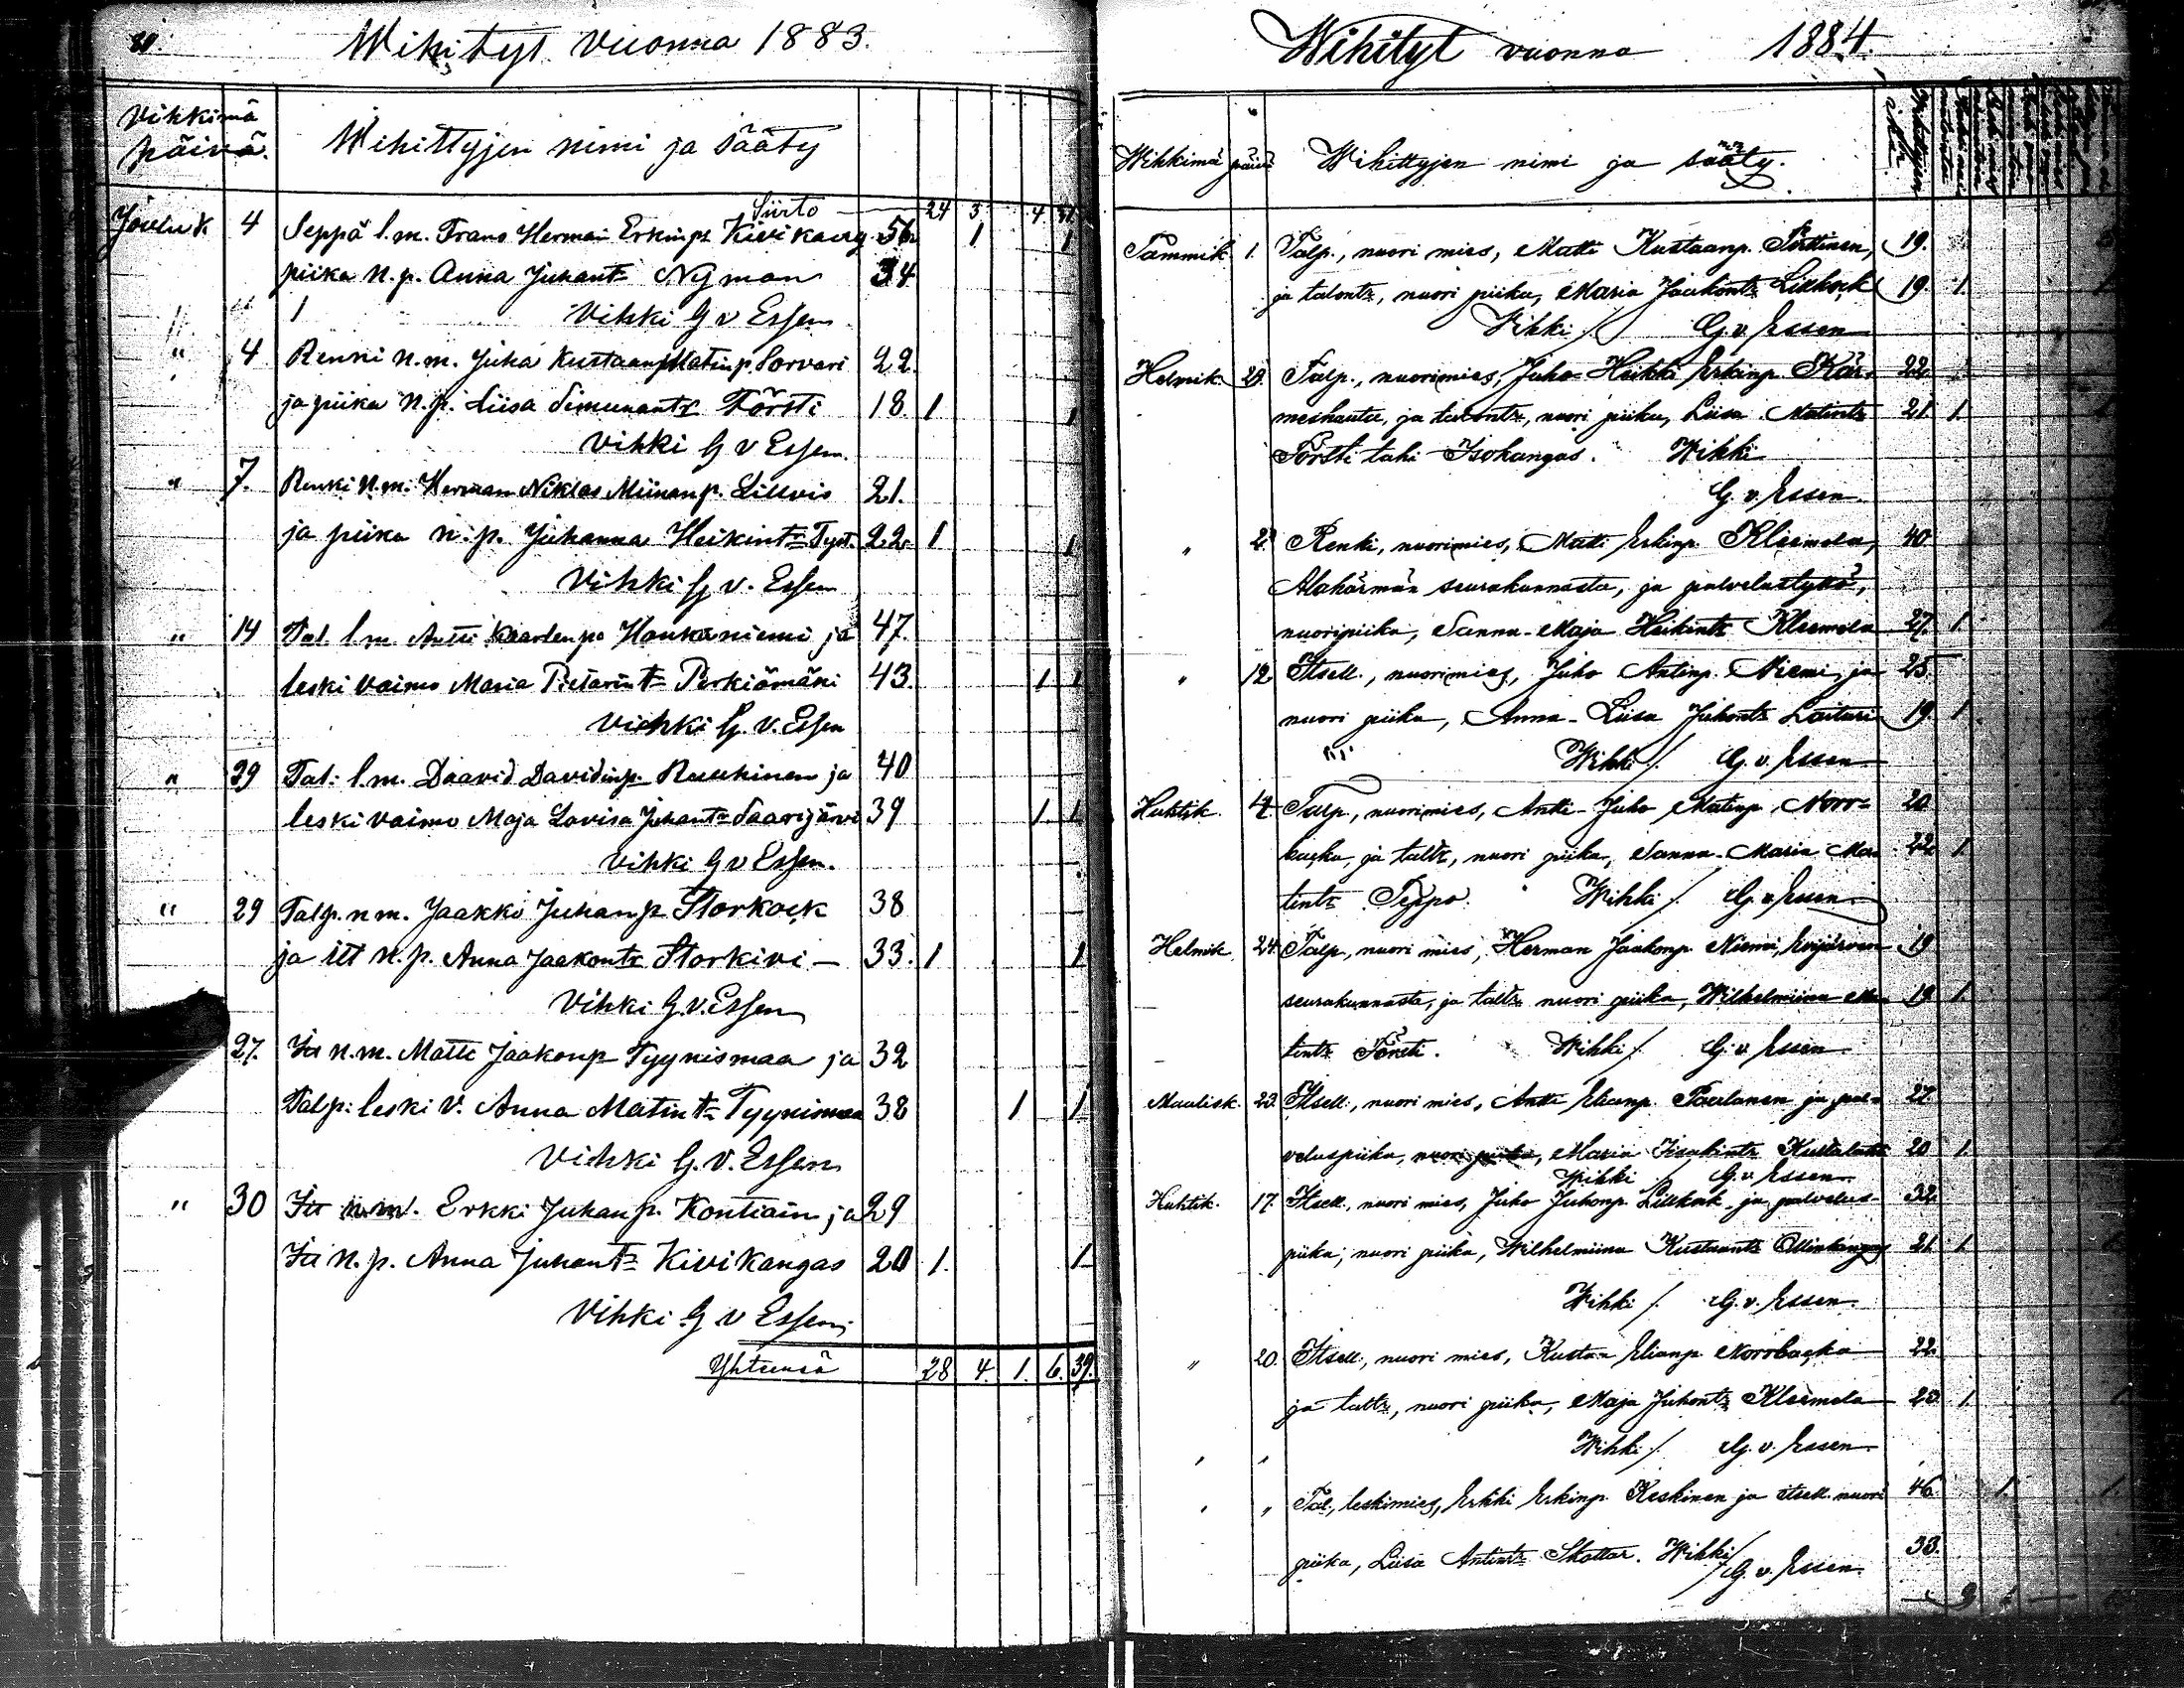 Wihityt vuonna 1883.
Vihkimä päivä. Wihittyjen nimi ja sääty
Siirto 24 3 4 31
Jouluk. 4 Seppä l.m. Frans Herman Erkinp. Kivikang 56 1 1
piika n.p. Anna Juhant: Nyman 34
Vihki G v Essen
" 4 Renki n.m. Juha Kustaanp Matinp. Sorvari 22.
ja piika n.p. Liisa Simunantr Försti 18 1 1
Vihki G v Essen.
" 7. Renki n.m. Herman Niklas Miinanp. 21.
ja piika n.p. Juhanna Heikint: Tyst. 22 1 1
Vihki G v. Essen
" 14 Tal. l.m. Antti Kaarlenpo Honkaniemi ja 47.
leski vaimo Maria Pietarint: Perkiömäki 43. 1 1
Vichki G. v. Essen
" 29 Tal: l.m. Daavid Davidinp. ja 40
leski vaimo Maja Lovisa Juhant: Saarijärvi 39 1. 1
Vihki G v Essen.
" 29 Talp. n m. Jaakko Juhanp Storkack 38
ja itt n.p. Anna Jaakontr Storkivi – 33. 1 1
Vihki G.v. Essen
27. Itt n.m. Matti Jaakonp Tyynismaa ja 32
Talp: leski v. Anna Matint: Tyynismaa 38 1 1
Vichki G. v. Essen
" 30 Itt n.m. Erkki Juhanp. Kontiain ja 29
Itt n.p. Anna Juhant: Kivikangas 20 1. 1
Vihki G v Essen
Yhteensä 28 4. 1. 6. 39.
Wihityt vuonna 1884.
Wihkimä päivä Wihittyjen nimi ja sääty.
Tammik. 1. Talp., nuori mies, Matti Kustaanp. Pörttinen, 19.
ja talontr, nuori piika, Maria Jaakontr Lillkack 19. 1.
Wihki /. G. v. Essen
Helmik. Talp., nuorimies, Juho Heikki Erkinp. Kär- 22.
meshauta, ja talontr, nuori piika, Liisa Matintr 21. 1.
Försti tahi Isokangas. Wihki
G. v. Essen.
" 2. Renki, nuorimies, Matti Erkinp. Kleemola, 40
Alahärmän seurakunnasta, ja palvelustyttö,
nuoripiika, Sanna-Maja Heikintr Kleemola 27. 1
" 12 Itsell., nuorimies, Juho Antinp. Niemi, ja 25.
nuori piika, Anna-Liisa Juhontr Laituri 19. 1
Wihki /. G. v. Essen
Huhtik. 4. Talp., nuorimies, Antti-Juho Matinp. Norr- 20
backa, ja taltr, nuori piika, Sanna-Maria Ma- 22. 1
tintr Teppo. Wihki /. G. v. Essen
Helmik. 24. Talp., nuori mies, Herman Jaakonp. Niemi, Evijärven 19
seurakunnasta, ja taltr nuori piika, Wilhelmiina Ma- 19 1.
tintr Försti. Wihki /. G. v. Essen
Maalisk. 23. Itsell., nuori mies, Antti Elianp. ja pal- 27.
veluspiika, nuori piika, Maria Iisakintr 20 1.
Wihki G. v. Essen
Huhtik. 17. Itsell., nuori mies, Juho Juhonp. Lillkack, ja palvelus- 32.
piika, nuori piika, Wilhelmiina Kustaantr 21. 1.
Wihki /. G. v. Essen.
" 20. Itsell., nuori mies, Kustaa Elianp. Norrbacka 22.
ja taltr, nuori piika, Maja Juhontr Kleemola 20. 1. 1.
Wihki /. G. v. Essen
" " Tal., leskimies, Erkki Erkinp. Keskinen ja itsell. nuori 46. 1. 1.
piika, Liisa Antintr Skattar. Wihki / G. v. Essen. 33.
9